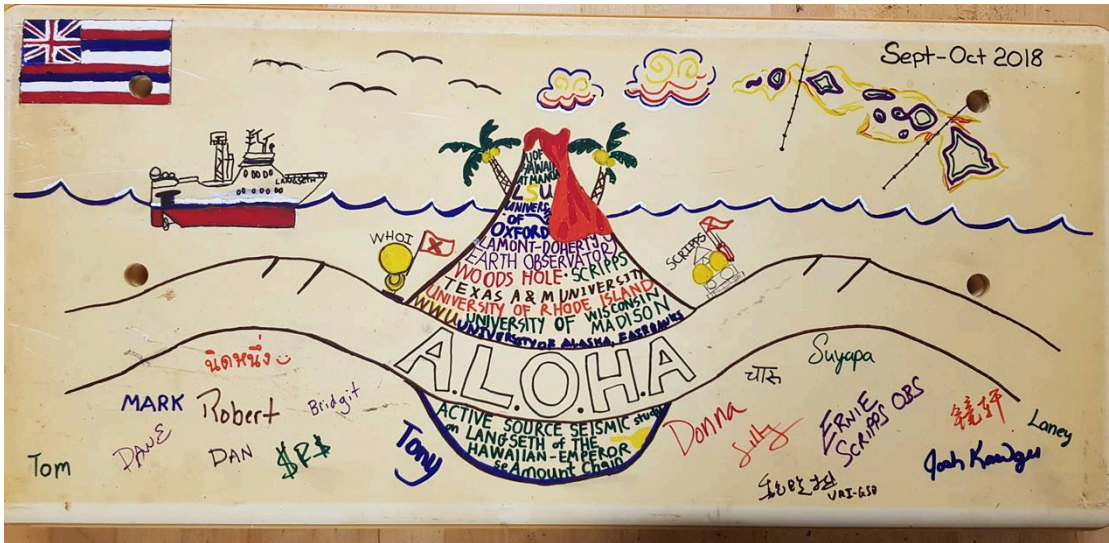 Sept-Oct 2018
LANGSETH
U OF
HAWAII
AT MANOA
LSU
UNIVERSITY
OF
OXFORD
LAMONT-DOHERTY
EARTH OBSERVATORY
WHOI
SCRIPPS
WOODS HOLE · SCRIPPS
TEXAS A & M UNIVERSITY
UNIVERSITY OF RHODE ISLAND
WWU UNIVERSITY OF WISCONSIN
MADISON
UNIVERSITY OF ALASKA, FAIRBANKS
A.L.O.H.A
ACTIVE SOURCE SEISMIC study
on LANGSETH of THE
HAWAIIAN-EMPEROR
seAmount Chain
นิดหนึ่ง
Suyapa
चारु
MARK
Robert
Bridgit
DANE
DAN
$R$
Tom
Tony
Donna
ERNIE
SCRIPPS OBS
Laney
URI-GSO